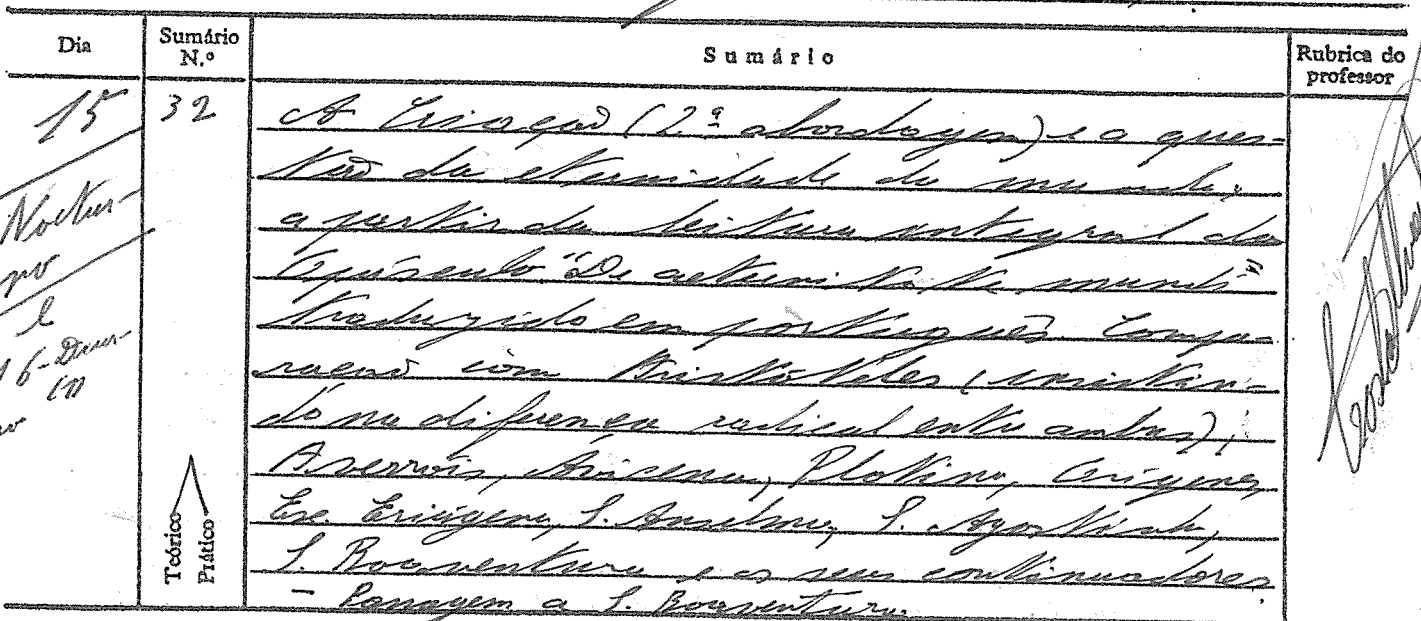 Dia
Sumário N.º
Sumário
Rubrica do professor
15
Noctur-
no
e
16-Diur-
no
32
Teórico
Prático
A Criação (2ª abordagem) e a ques-
tão da eternidade do mundo,
a partir da leitura integral do
Opúsculo "De aeternitate mundi"
traduzido em português. Compa-
ração com Aristóteles (insistin-
do na diferença radical entre ambos),
Averróis, Avicena, Plotino, Orígenes,
Esc. Eriúgena, S. Anselmo, S. Agostinho,
S. Boaventura e os seus continuadores
- Passagem a S. Boaventura.